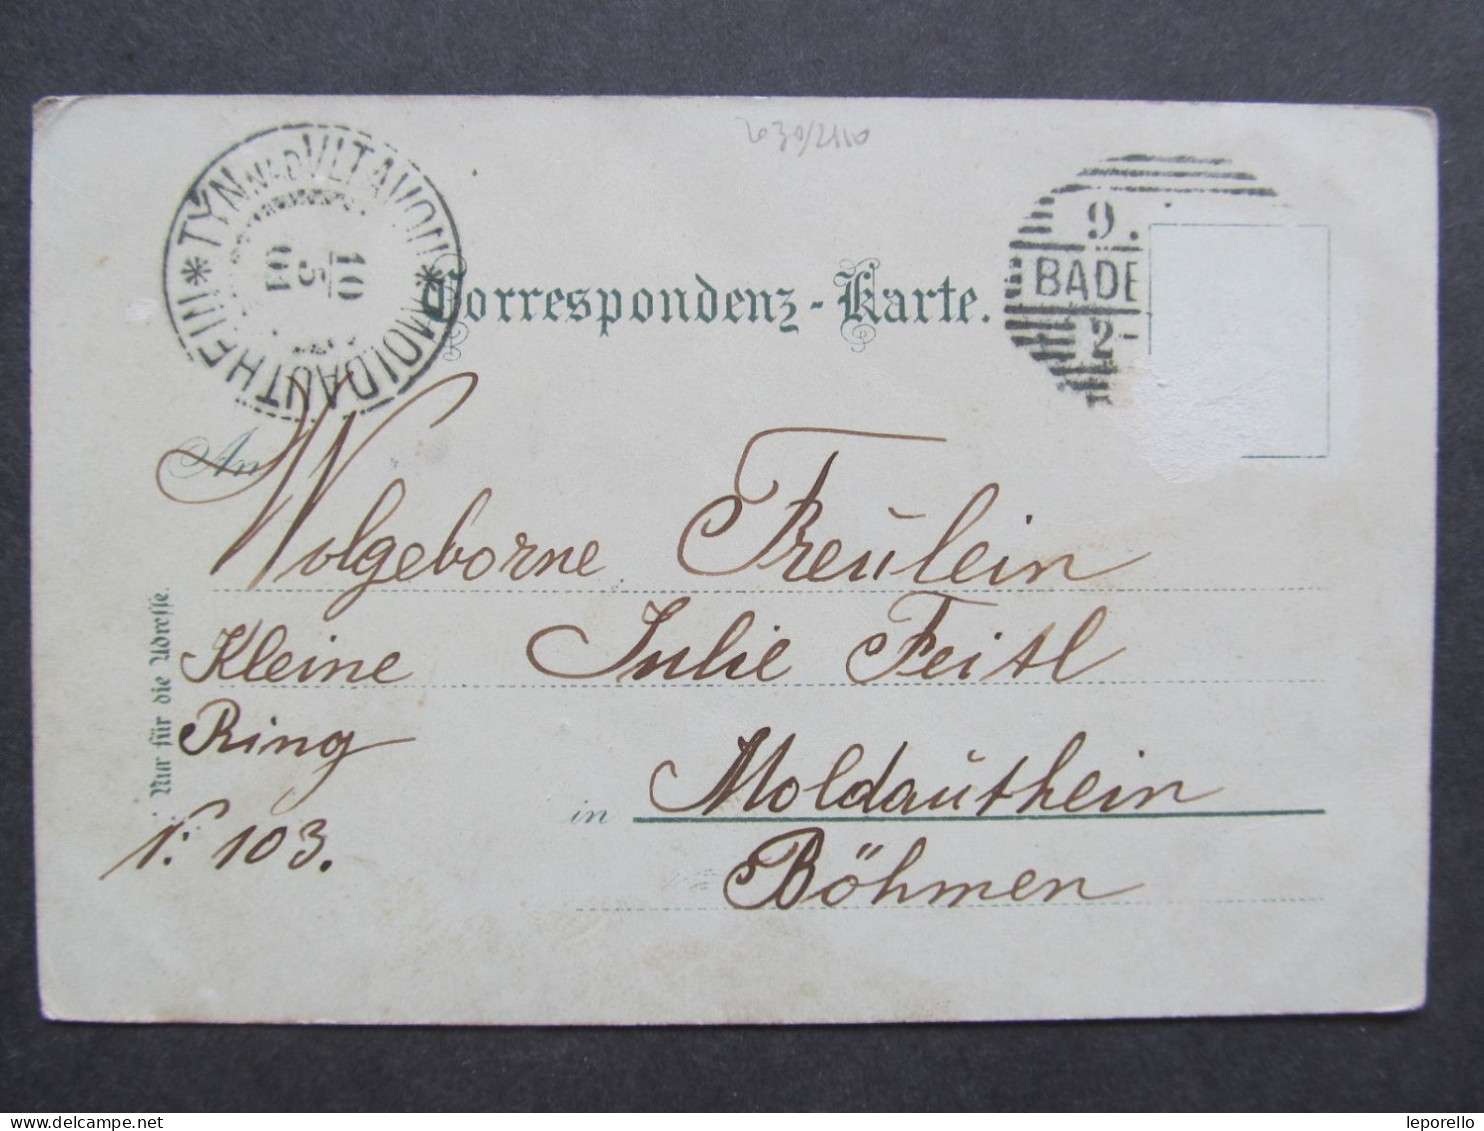 2630/2110
TÝN NAD VLTAVOU * MOLDAUTHEIN *
10
5
01
9.
BADE
2-
Correspondenz-Karte.
An
Wolgeborne Freŭlein
Kleine Julie Feitl
Ring
in Moldaŭthein
N: 103.
Böhmen
Nur für die Adresse.
leporello